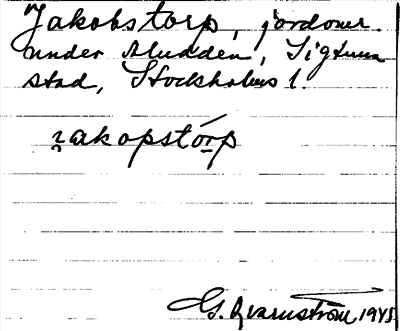 Jakobstorp, jordomr.
under Mudden, Sigtuna
stad, Stockholms l.
jakopstórp
G. Qvarnström 1945